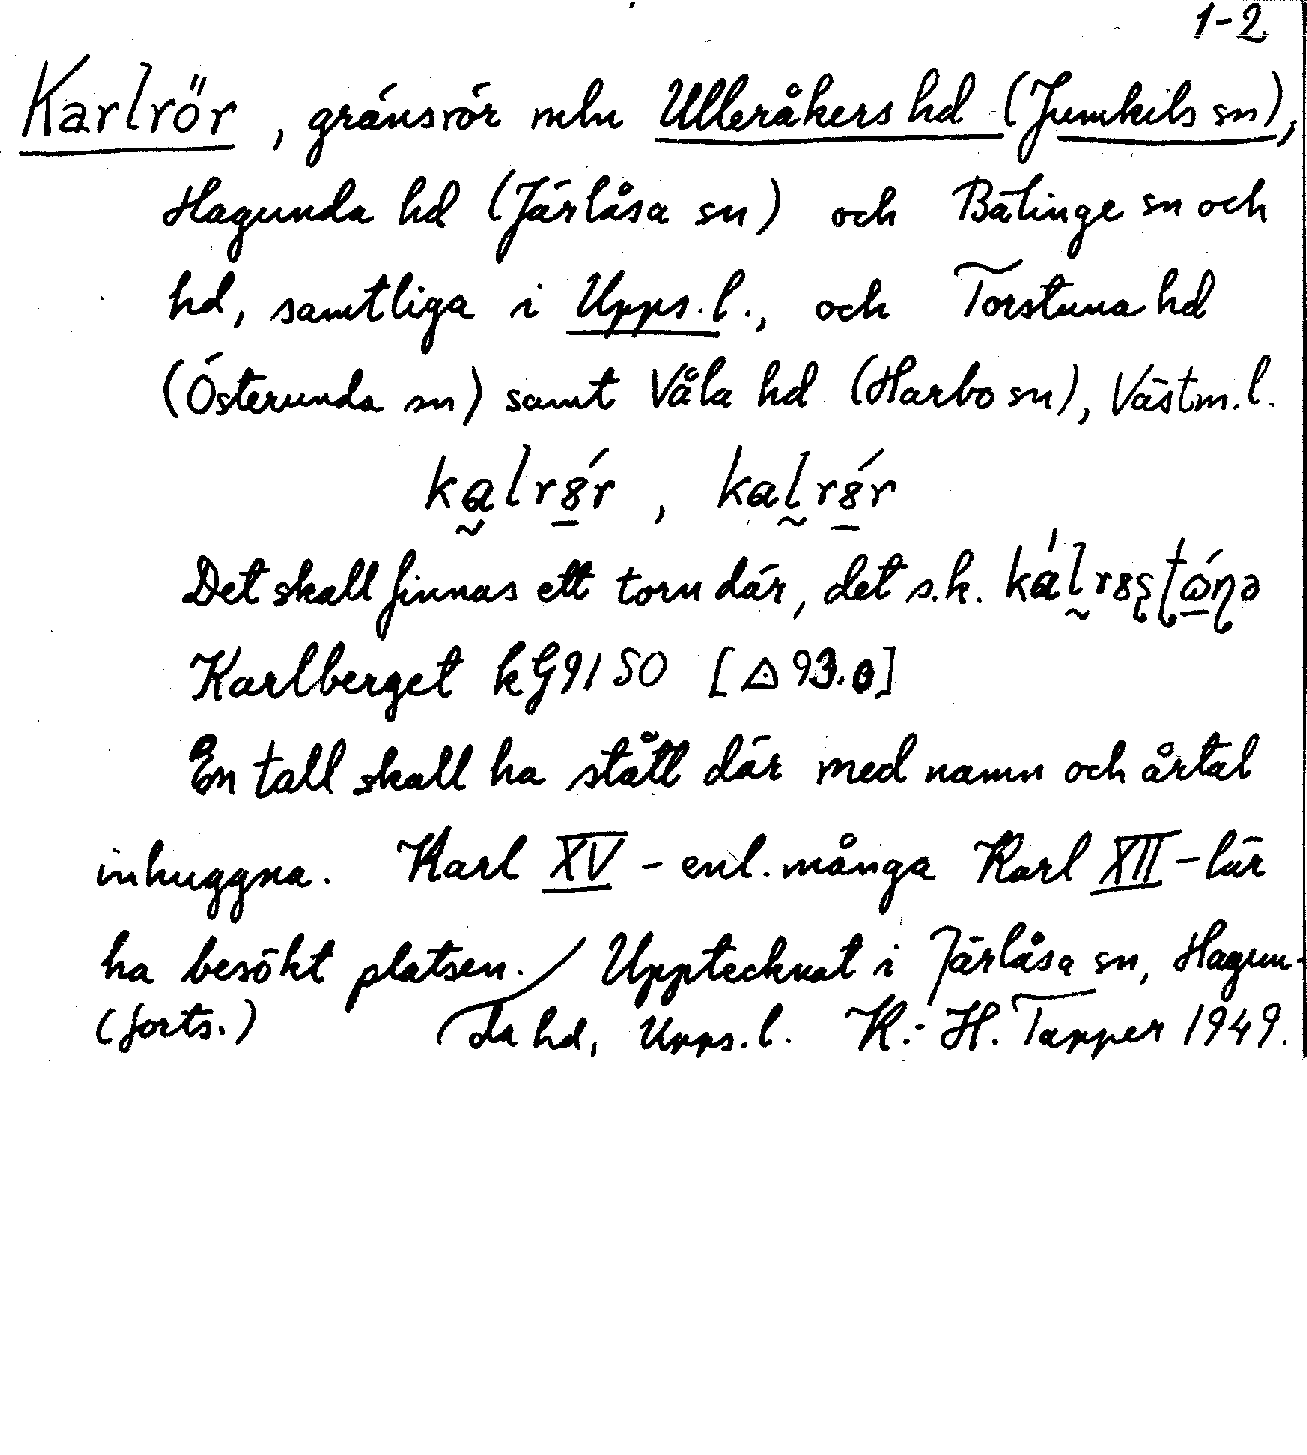 1-2
Karlrör, gränsrör mln Ulleråkers hd (Jumkils sn),
Hagunda hd (Järlåsa sn) och Bälinge sn och
hd, samtliga i Upps.l., och Torstuna hd
(Österunda sn) samt Våla hd (Harbo sn), Västm.l.
Det skall finnas ett torn där, det s.k.
Karlberget kG9150 [△ 93.0]
En tall skall ha stått där med namn och årtal
inhuggna. Karl XV – enl. många Karl XII – lär
ha besökt platsen. / Upptecknat i Järlåsa sn, Hagun-
(forts.) da hd, Upps.l. K.-H. Tapper 1949.